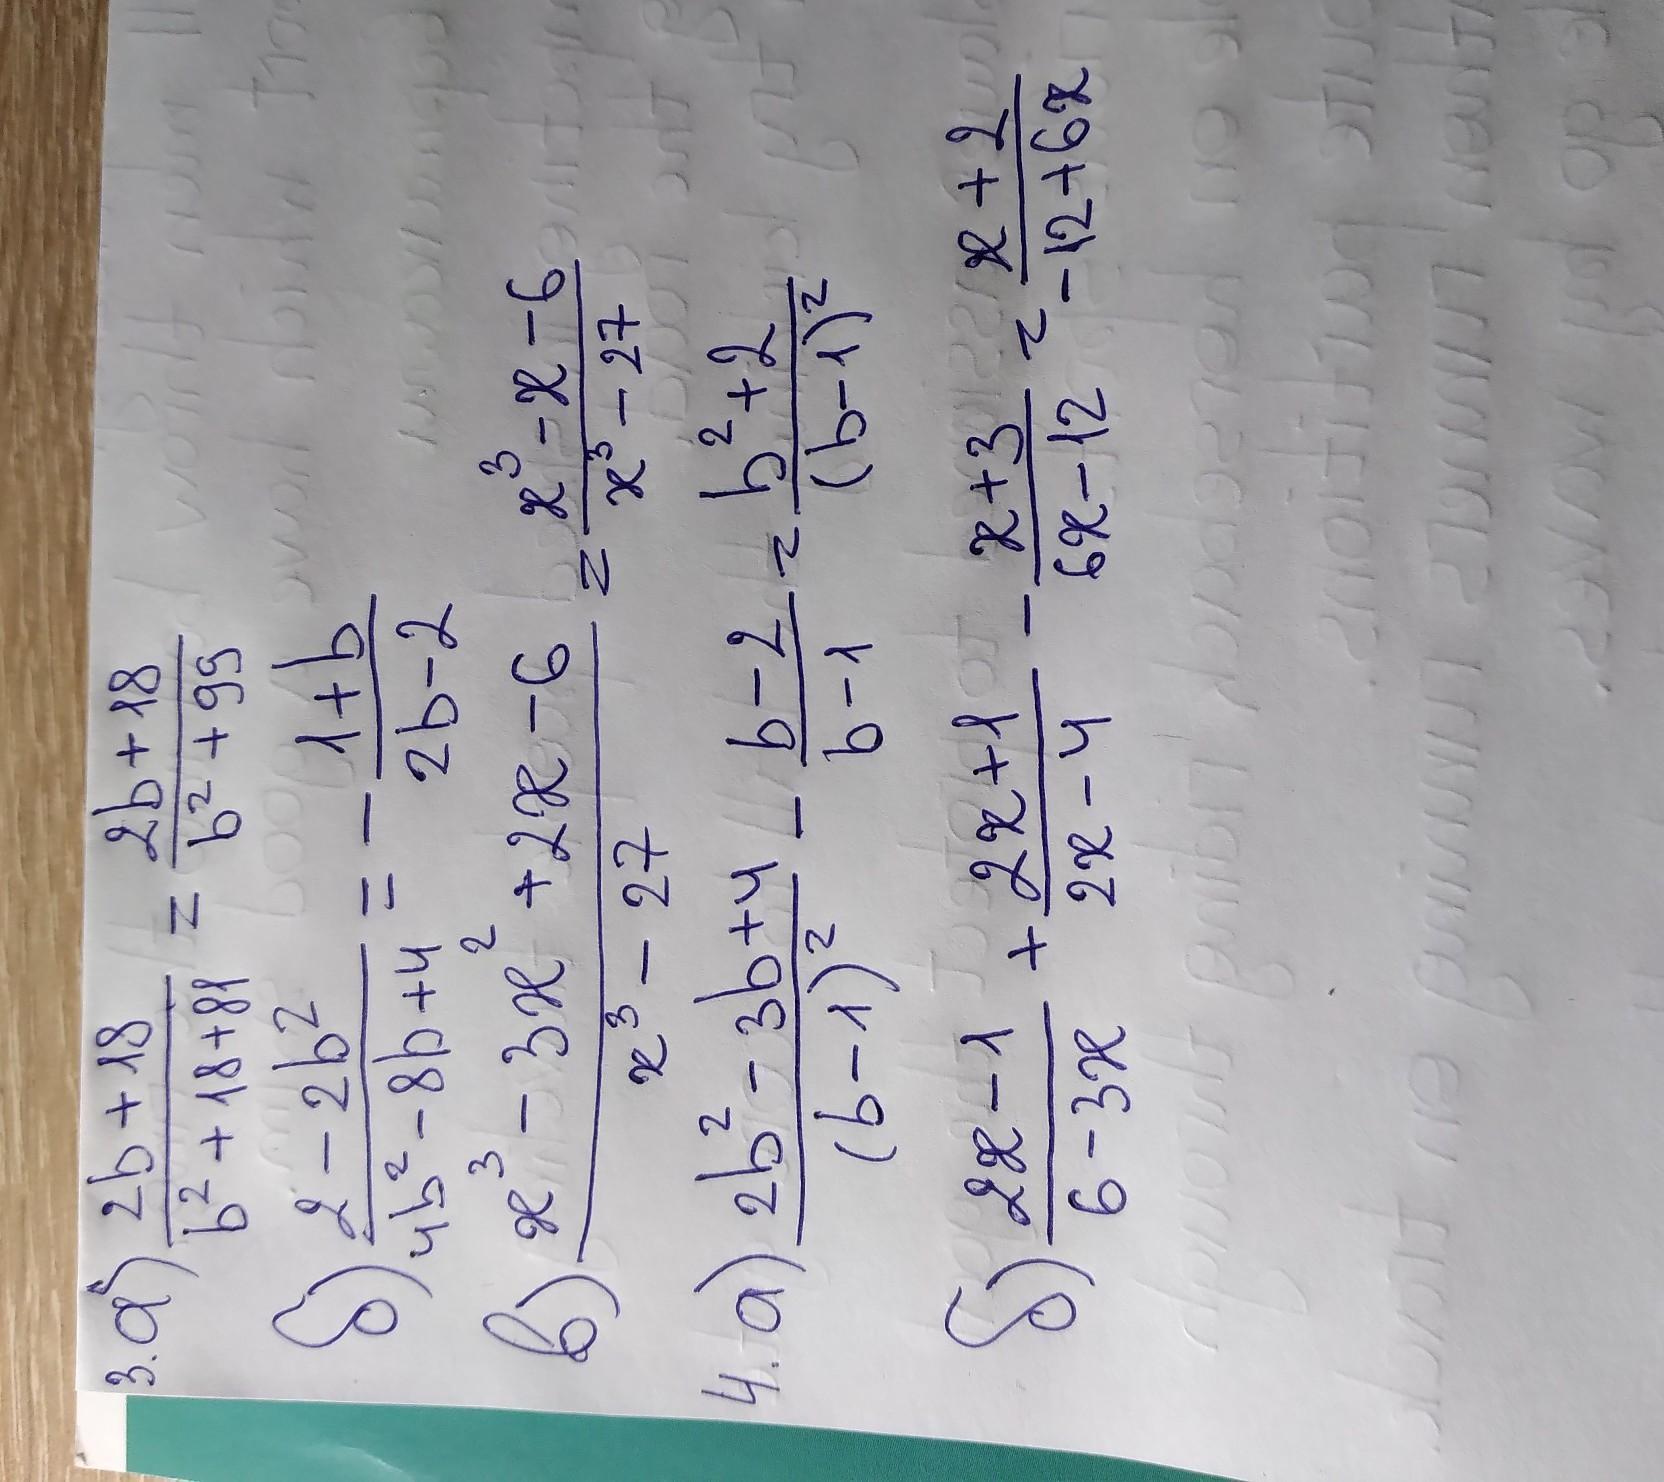 3. а) (2b+18)/(b²+18+81) = (2b+18)/(b²+99)
б) (2-2b²)/(4b²-8b+4) = -(1+b)/(2b-2)
в) (x³-3x²+2x-6)/(x³-27) = (x³-x-6)/(x³-27)
4. а) (2b²-3b+4)/(b-1)² - (b-2)/(b-1) = (b²+2)/(b-1)²
б) (2x-1)/(6-3x) + (2x+1)/(2x-4) - (x+3)/(6x-12) = (x+2)/(-12+6x)